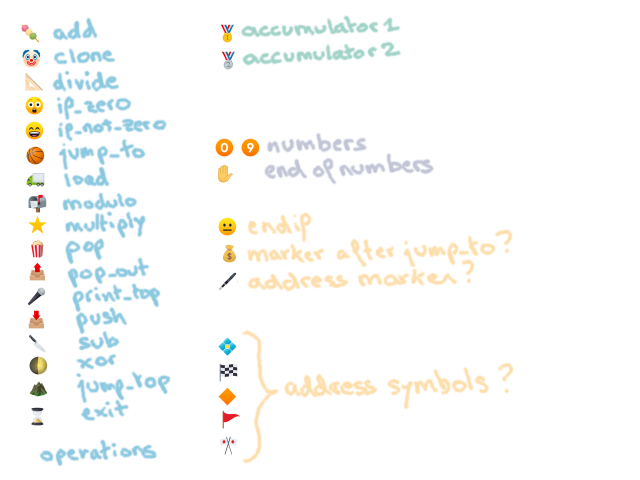 add
clone
divide
if_zero
if_not_zero
jump_to
load
modulo
multiply
pop
pop_out
print_top
push
sub
xor
jump_top
exit
operations
accumulator 1
accumulator 2
0 9 numbers
end of numbers
endif
marker after jump_to?
address marker?
address symbols?